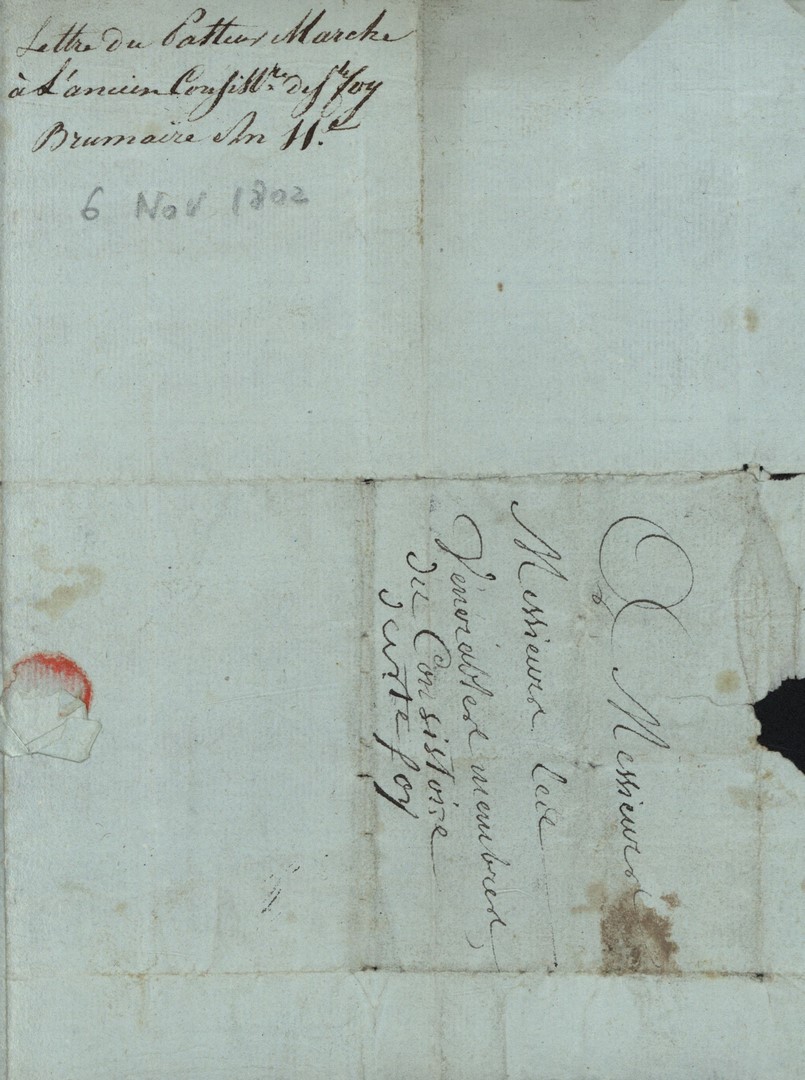 Lettre du Pasteur Marche
à L'ancien Consistre. de Ste foy
Brumaire An 11.e
6 Nov 1802
A Messieurs
Messieurs les
Vénérables membres,
du Consistoire
de Ste foy